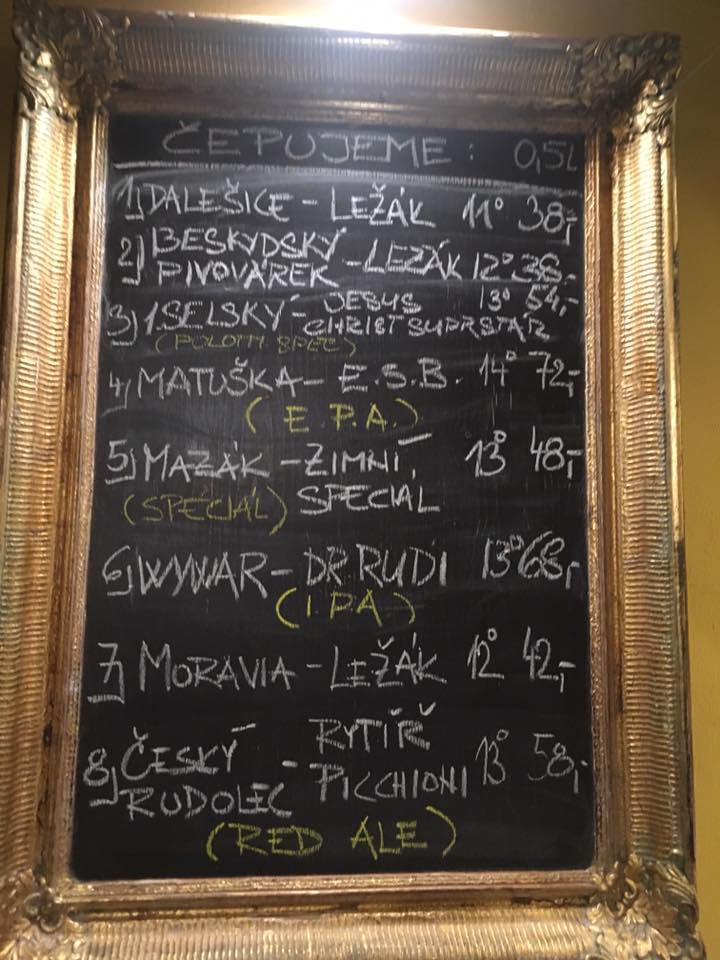 ČEPUJEME: 0,5L
1) DALEŠICE - LEŽÁK 11° 38,-
2) BESKYDSKÝ
PIVOVÁREK - LEZÁK 12° 38,-
3) 1.SELSKÝ - JESUS 13° 54,-
CHRIST SUPRSTAR
(POLOTM. SPEC)
4) MATUŠKA - E.S.B. 14° 72,-
(E.P.A.)
5) MAZÁK - ZIMNÍ 13° 48,-
(SPÉCIÁL) SPECIAL
6) WYWAR - DR.RUDI 13° 68,-
(I.P.A)
7) MORAVIA - LEŽÁK 12° 42,-
8) ČESKÝ - RYTÍŘ 13° 58,-
RUDOLEC PICCHIONI
(RED ALE)